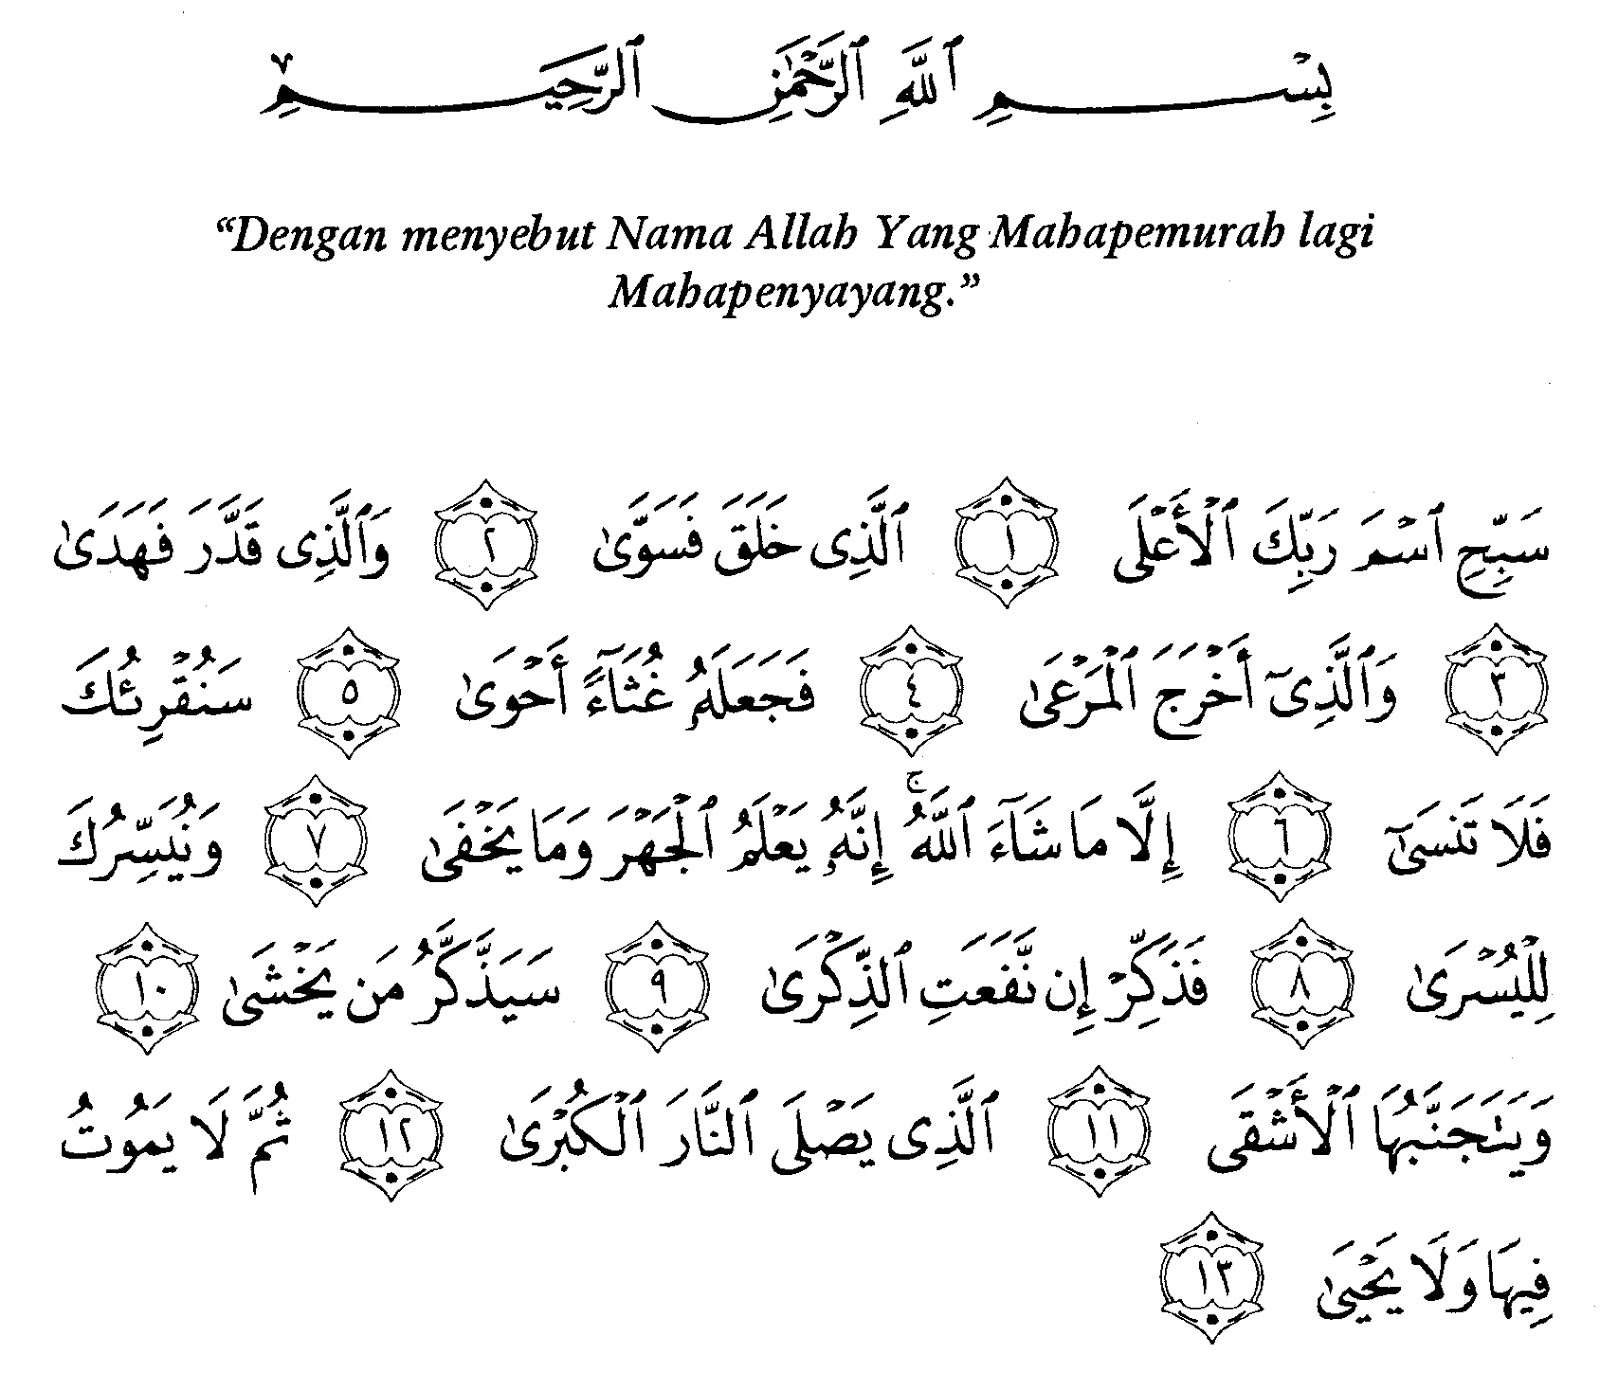 بِسْمِ ٱللَّهِ ٱلرَّحْمَٰنِ ٱلرَّحِيمِ
“Dengan menyebut Nama Allah Yang Mahapemurah lagi
Mahapenyayang.”
سَبِّحِ ٱسْمَ رَبِّكَ ٱلْأَعْلَى ١ ٱلَّذِى خَلَقَ فَسَوَّىٰ ٢ وَٱلَّذِى قَدَّرَ فَهَدَىٰ
٣ وَٱلَّذِىٓ أَخْرَجَ ٱلْمَرْعَىٰ ٤ فَجَعَلَهُۥ غُثَآءً أَحْوَىٰ ٥ سَنُقْرِئُكَ
فَلَا تَنسَىٰٓ ٦ إِلَّا مَا شَآءَ ٱللَّهُ ۚ إِنَّهُۥ يَعْلَمُ ٱلْجَهْرَ وَمَا يَخْفَىٰ ٧ وَنُيَسِّرُكَ
لِلْيُسْرَىٰ ٨ فَذَكِّرْ إِن نَّفَعَتِ ٱلذِّكْرَىٰ ٩ سَيَذَّكَّرُ مَن يَخْشَىٰ ١٠
وَيَتَجَنَّبُهَا ٱلْأَشْقَى ١١ ٱلَّذِى يَصْلَى ٱلنَّارَ ٱلْكُبْرَىٰ ١٢ ثُمَّ لَا يَمُوتُ
فِيهَا وَلَا يَحْيَىٰ ١٣